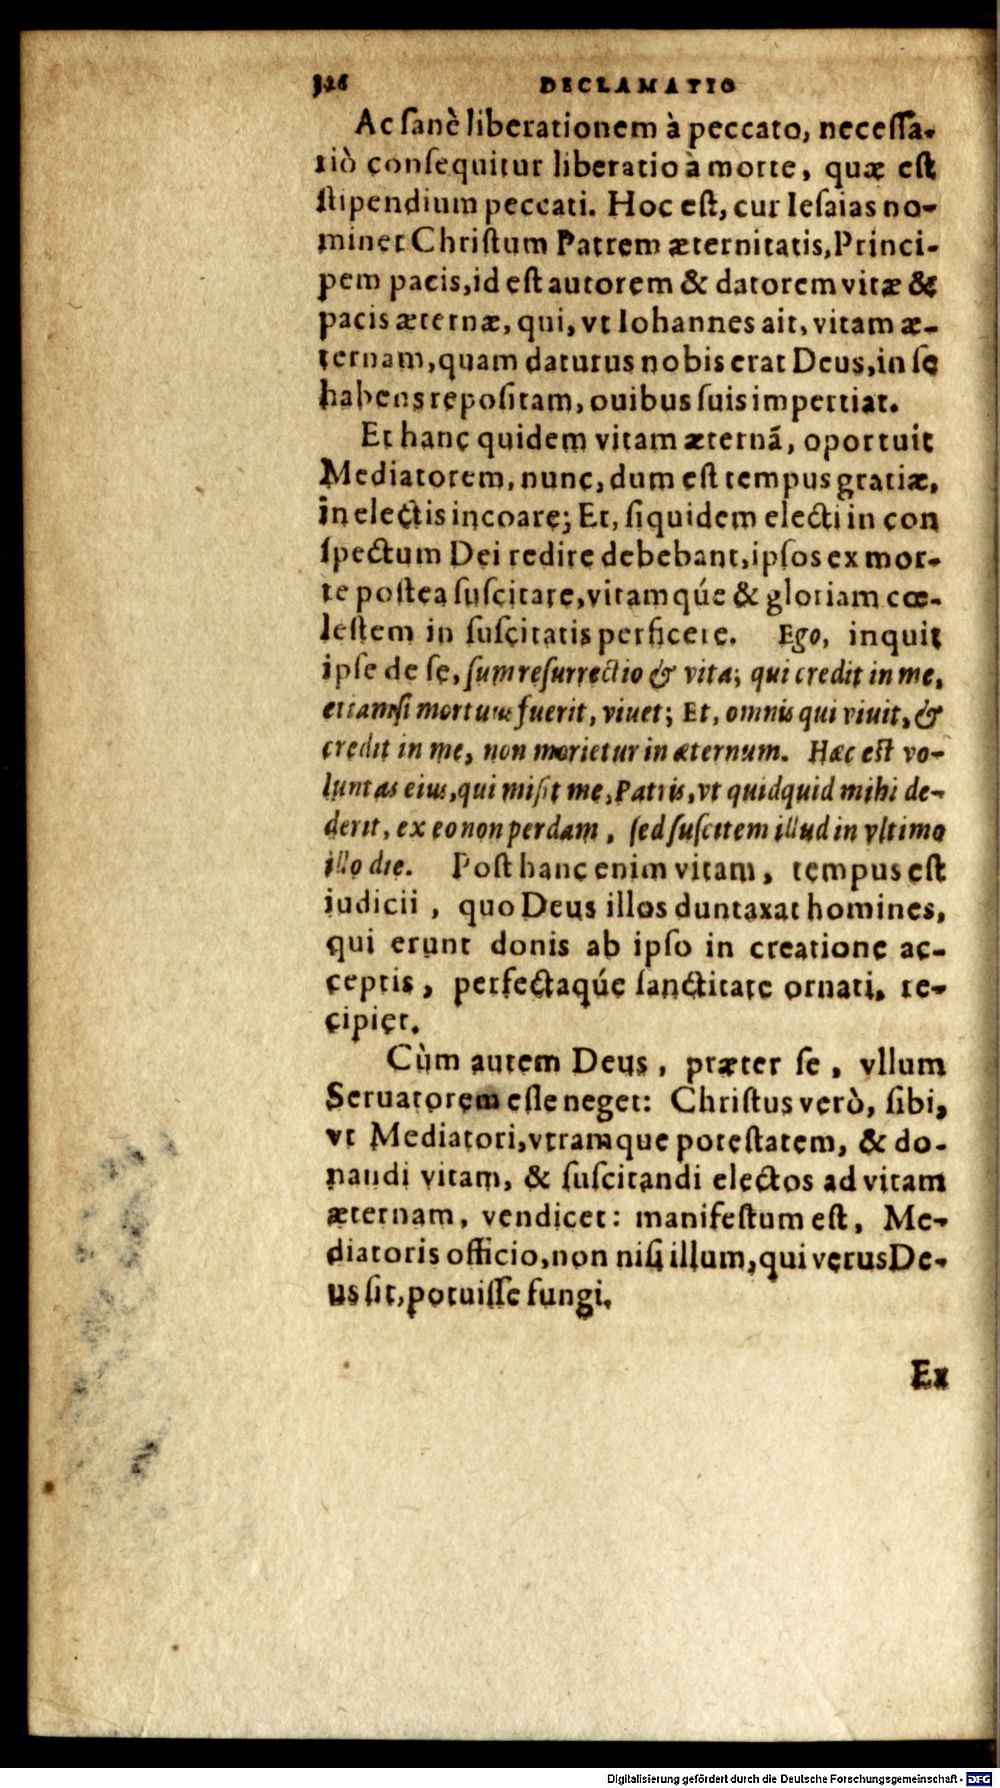 326 DECLAMATIO
Ac ſanè liberationem à peccato, neceſſa-
riò conſequitur liberatio à morte, quæ eſt
ſtipendium peccati. Hoc eſt, cur Ieſaias no-
minet Chriſtum Patrem æternitatis, Princi-
pem pacis, id eſt autorem & datorem vitæ &
pacis æternæ, qui, vt Iohannes ait, vitam æ-
ternam, quam daturus nobis erat Deus, in ſe
habens repoſitam, ouibus ſuis impertiat.
Et hanc quidem vitam æternā, oportuit
Mediatorem, nunc, dum eſt tempus gratiæ,
in electis incoare; Et, ſiquidem electi in con
ſpectum Dei redire debebant, ipſos ex mor-
te poſtea ſuſcitare, vitamqúe & gloriam cœ-
leſtem in ſuſcitatis perficere. Ego, inquit
ipſe de ſe, ſum reſurrectio & vita; qui credit in me,
etiamſi mortuus fuerit, viuet; Et, omnis qui viuit, &
credit in me, non morietur in æternum. Hæc eſt vo-
luntas eius, qui miſit me, Patris, vt quidquid mihi de-
derit, ex eo non perdam, ſed ſuſcitem illud in vltimo
illo die. Poſt hanc enim vitam, tempus eſt
iudicii, quo Deus illos duntaxat homines,
qui erunt donis ab ipſo in creatione ac-
ceptis, perfectaqúe ſanctitate ornati, re-
cipiet.
Cùm autem Deus, præter ſe, vllum
Seruatorem eſſe neget: Chriſtus verò, ſibi,
vt Mediatori, vtramque poteſtatem, & do-
nandi vitam, & ſuſcitandi electos ad vitam
æternam, vendicet: manifeſtum eſt, Me-
diatoris officio, non niſi illum, qui verus De-
us ſit, potuiſſe fungi.
Ex
Digitalisierung gefördert durch die Deutsche Forschungsgemeinschaft - DFG